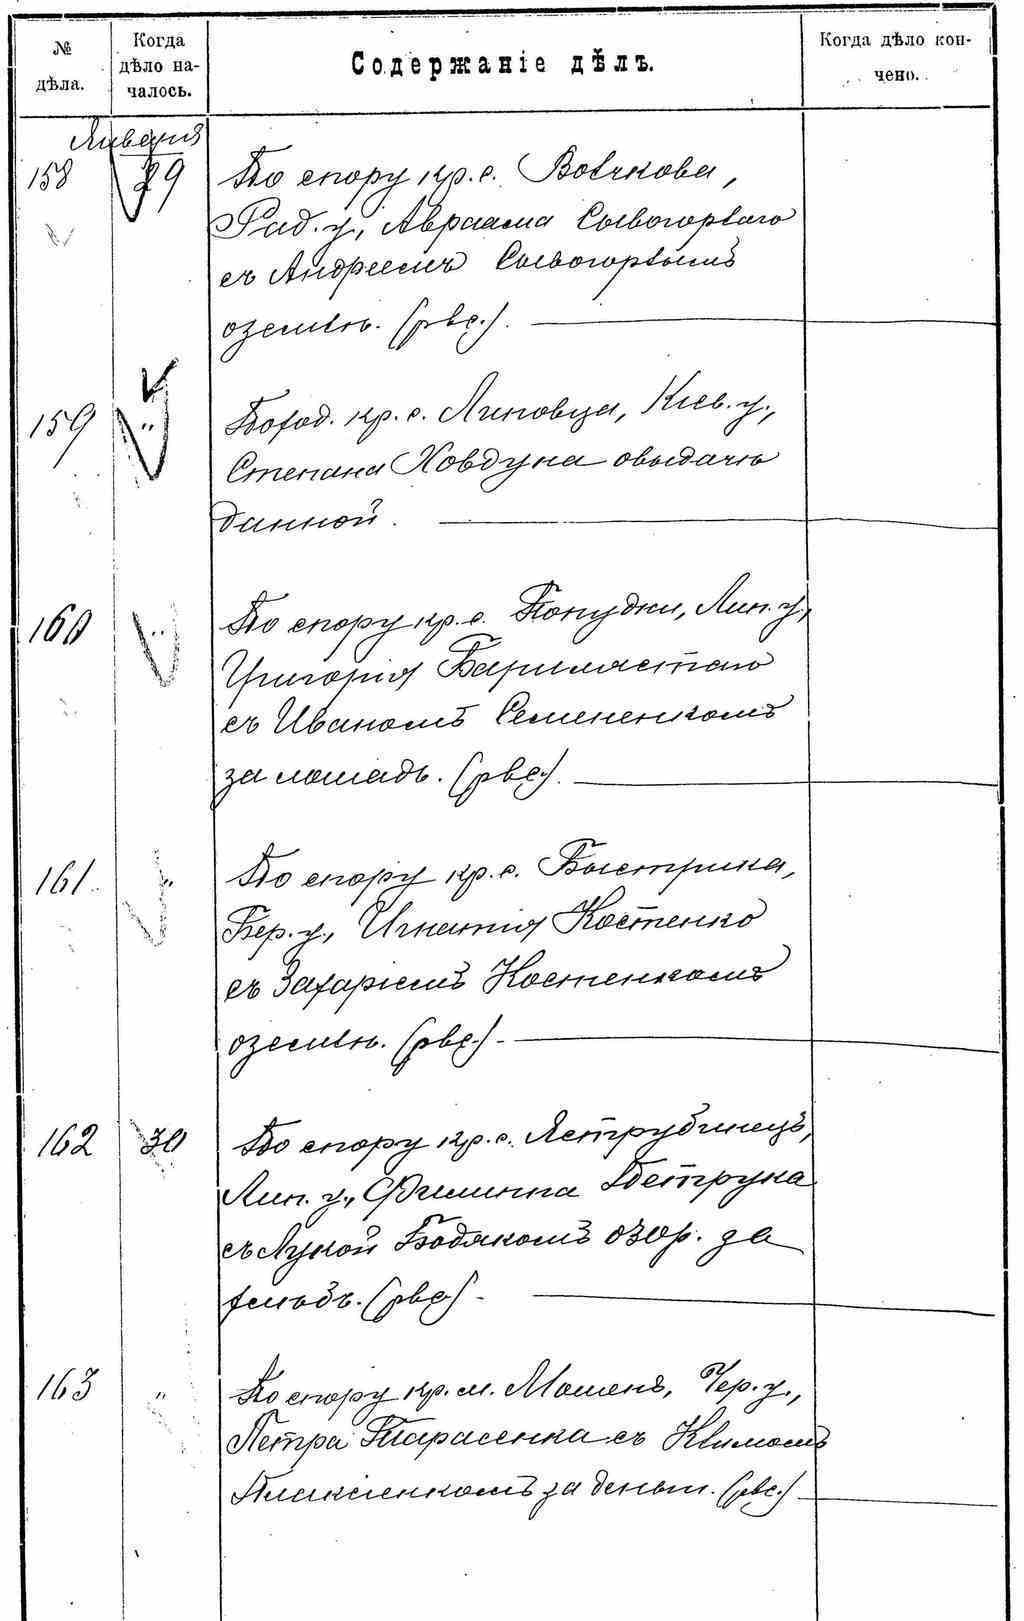 № дѣла.
Когда дѣло на-
чалось.
Содержаніе дѣлъ.
Когда дѣло кон-
чено.
Января
158 29 По спору кр. с. Вовчкова,
Рад. у., Авраама Сывогорваго
съ Андреемъ Сывогорвымъ
о землѣ. (рвс.).
159 " По ход. кр. с. Линовца, Кіев. у.,
Степана Ховдуна о выдачѣ
данной.
160 " По спору кр. с. Попудки, Лип. у.,
Григорія Барилястаго
съ Иваномъ Семененкомъ
за лошадь. (рвс.).
161 " По спору кр. с. Быстрика,
Бер. у., Игнатія Костенко
съ Захаріемъ Костенкомъ
о землѣ. (рвс.) -
162 30 По спору кр. с. Яструбинецъ,
Лип. у., Филиппа Петрука
съ Лукой Бодякомъ о вор. за
хлѣбъ. (рвс) -
163 " По спору кр. м. Мошенъ, Чер. у.,
Петра Тарасенка съ Климомъ
за деньги. (рвс.)